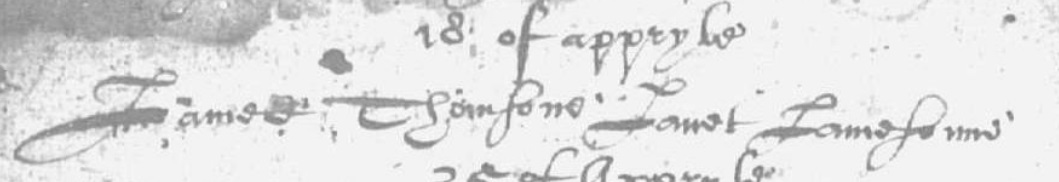 18 of appryle
James Thomsone Janet Jamesonne
25 of Appryle